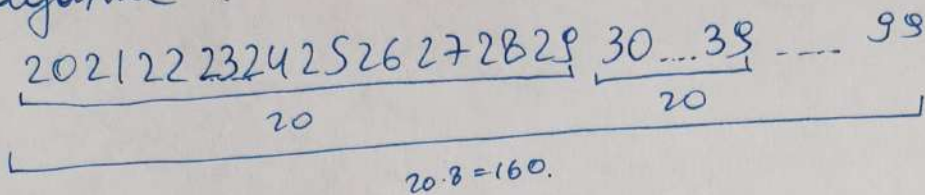 20212223242526272829 30...39 .... 99
20 20
20.8=160.